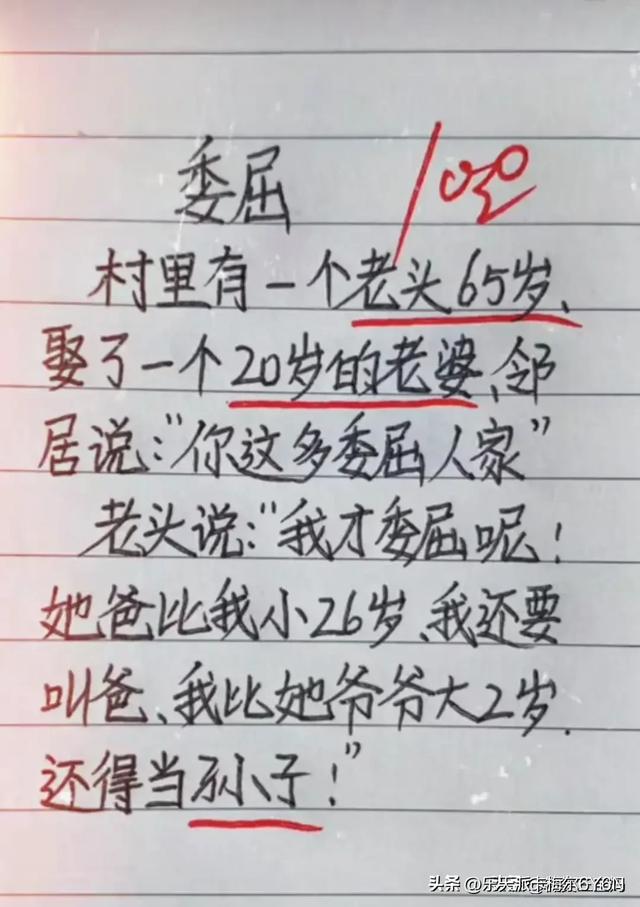 委屈
村里有一个老头65岁、
娶了一个20岁的老婆、邻
居说:"你这多委屈人家"
老头说:"我才委屈呢!
她爸比我小26岁、我还要
叫爸、我比她爷爷大2岁.
还得当孙子!"
头条 @乐天派卡梅尔